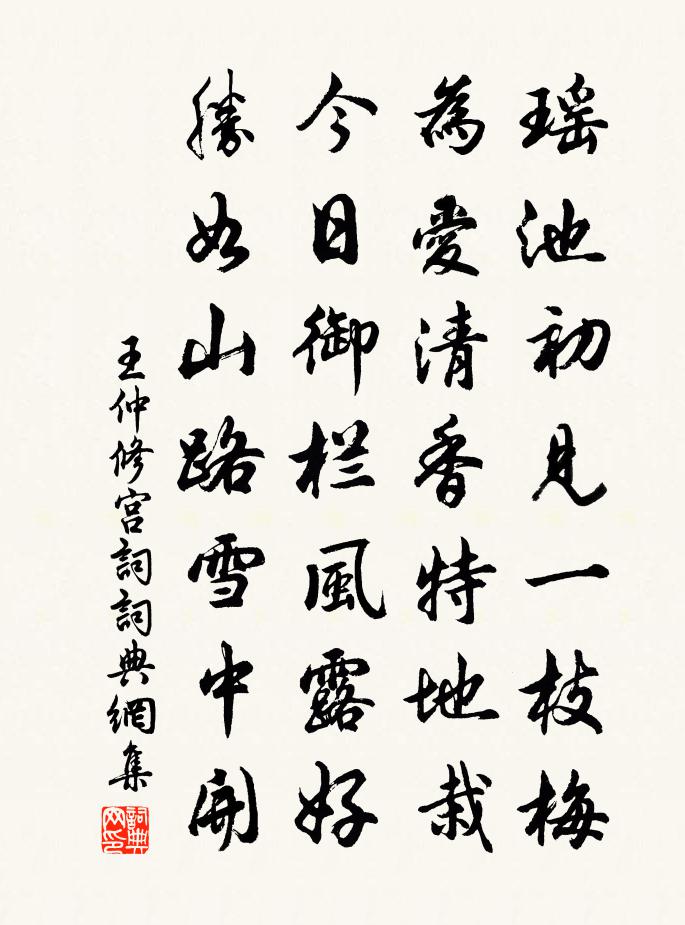 瑶池初見一枝梅
為愛清香特地栽
今日御栏風露好
勝如山路雪中開
王仲修宫詞詞典網集
詞典网印